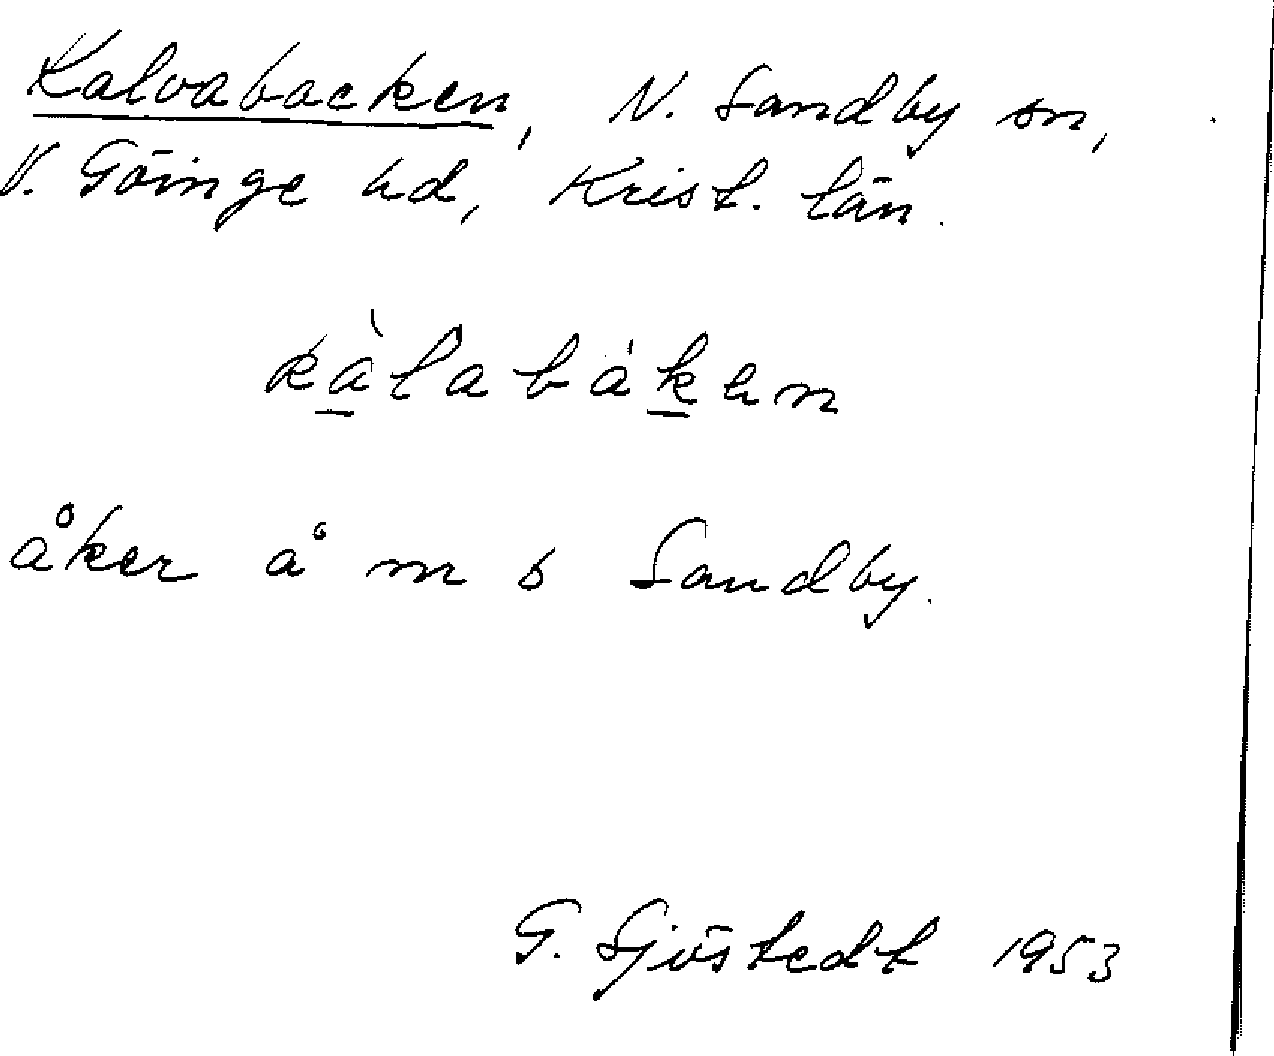 Kalvabacken, N. Sandby sn,
V. Göinge hd, Krist. län.
kàlabákan
åker å n:o 6 Sandby.
G. Sjöstedt 1953